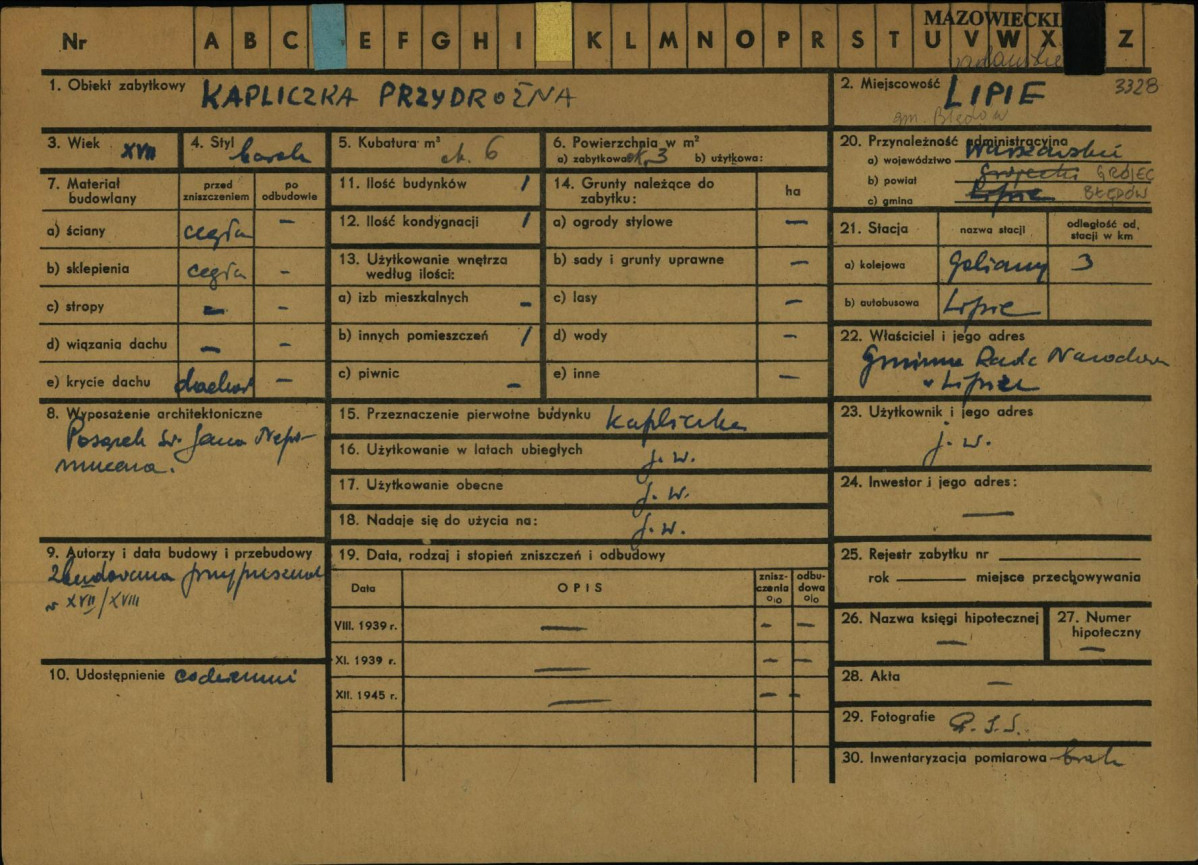 MAZOWIECKI
Nr A B C E F G H I K L M N O P R S T U V W X Z
1. Obiekt zabytkowy KAPLICZKA PRZYDROŻNA
2. Miejscowość LIPIE 3328
gm. Błędów
3. Wiek XVII
4. Styl barok
5. Kubatura m³ ok. 6
6. Powierzchnia w m²
a) zabytkowa ok. 3 b) użytkowa:
20. Przynależność administracyjna
a) województwo Warszawskie
b) powiat Grójecki GRÓJEC
c) gmina Lipie BŁĘDÓW
7. Materiał budowlany
przed zniszczeniem
po odbudowie
a) ściany cegła –
b) sklepienia cegła –
c) stropy – –
d) wiązania dachu – –
e) krycie dachu –
11. Ilość budynków 1
12. Ilość kondygnacji 1
13. Użytkowanie wnętrza
według ilości:
a) izb mieszkalnych –
b) innych pomieszczeń 1
c) piwnic –
14. Grunty należące do
zabytku:
ha
a) ogrody stylowe –
b) sady i grunty uprawne –
c) lasy –
d) wody –
e) inne –
21. Stacja
nazwa stacji
odległość od,
stacji w km
a) kolejowa Goliany 3
b) autobusowa Lipie
22. Właściciel i jego adres
Gminna Rada Narodowa
w Lipiu
8. Wyposażenie architektoniczne
Posążek św. Jana Nepo-
mucena.
15. Przeznaczenie pierwotne budynku kapliczka
16. Użytkowanie w latach ubiegłych j. w.
17. Użytkowanie obecne j. w.
18. Nadaje się do użycia na: j. w.
23. Użytkownik i jego adres
j. w.
24. Inwestor i jego adres:
–
9. Autorzy i data budowy i przebudowy
Zbudowana przypuszczal
w XVII/XVIII
10. Udostępnienie codzienni
19. Data, rodzaj i stopień zniszczeń i odbudowy
Data OPIS
znisz-
czenia
o/o
odbu-
dowa
o/o
VIII. 1939 r. – – –
XI. 1939 r. – – –
XII. 1945 r. – – –
25. Rejestr zabytku nr
rok miejsce przechowywania
26. Nazwa księgi hipotecznej
–
27. Numer
hipoteczny
–
28. Akta –
29. Fotografie P. I. S.
30. Inwentaryzacja pomiarowa – brak